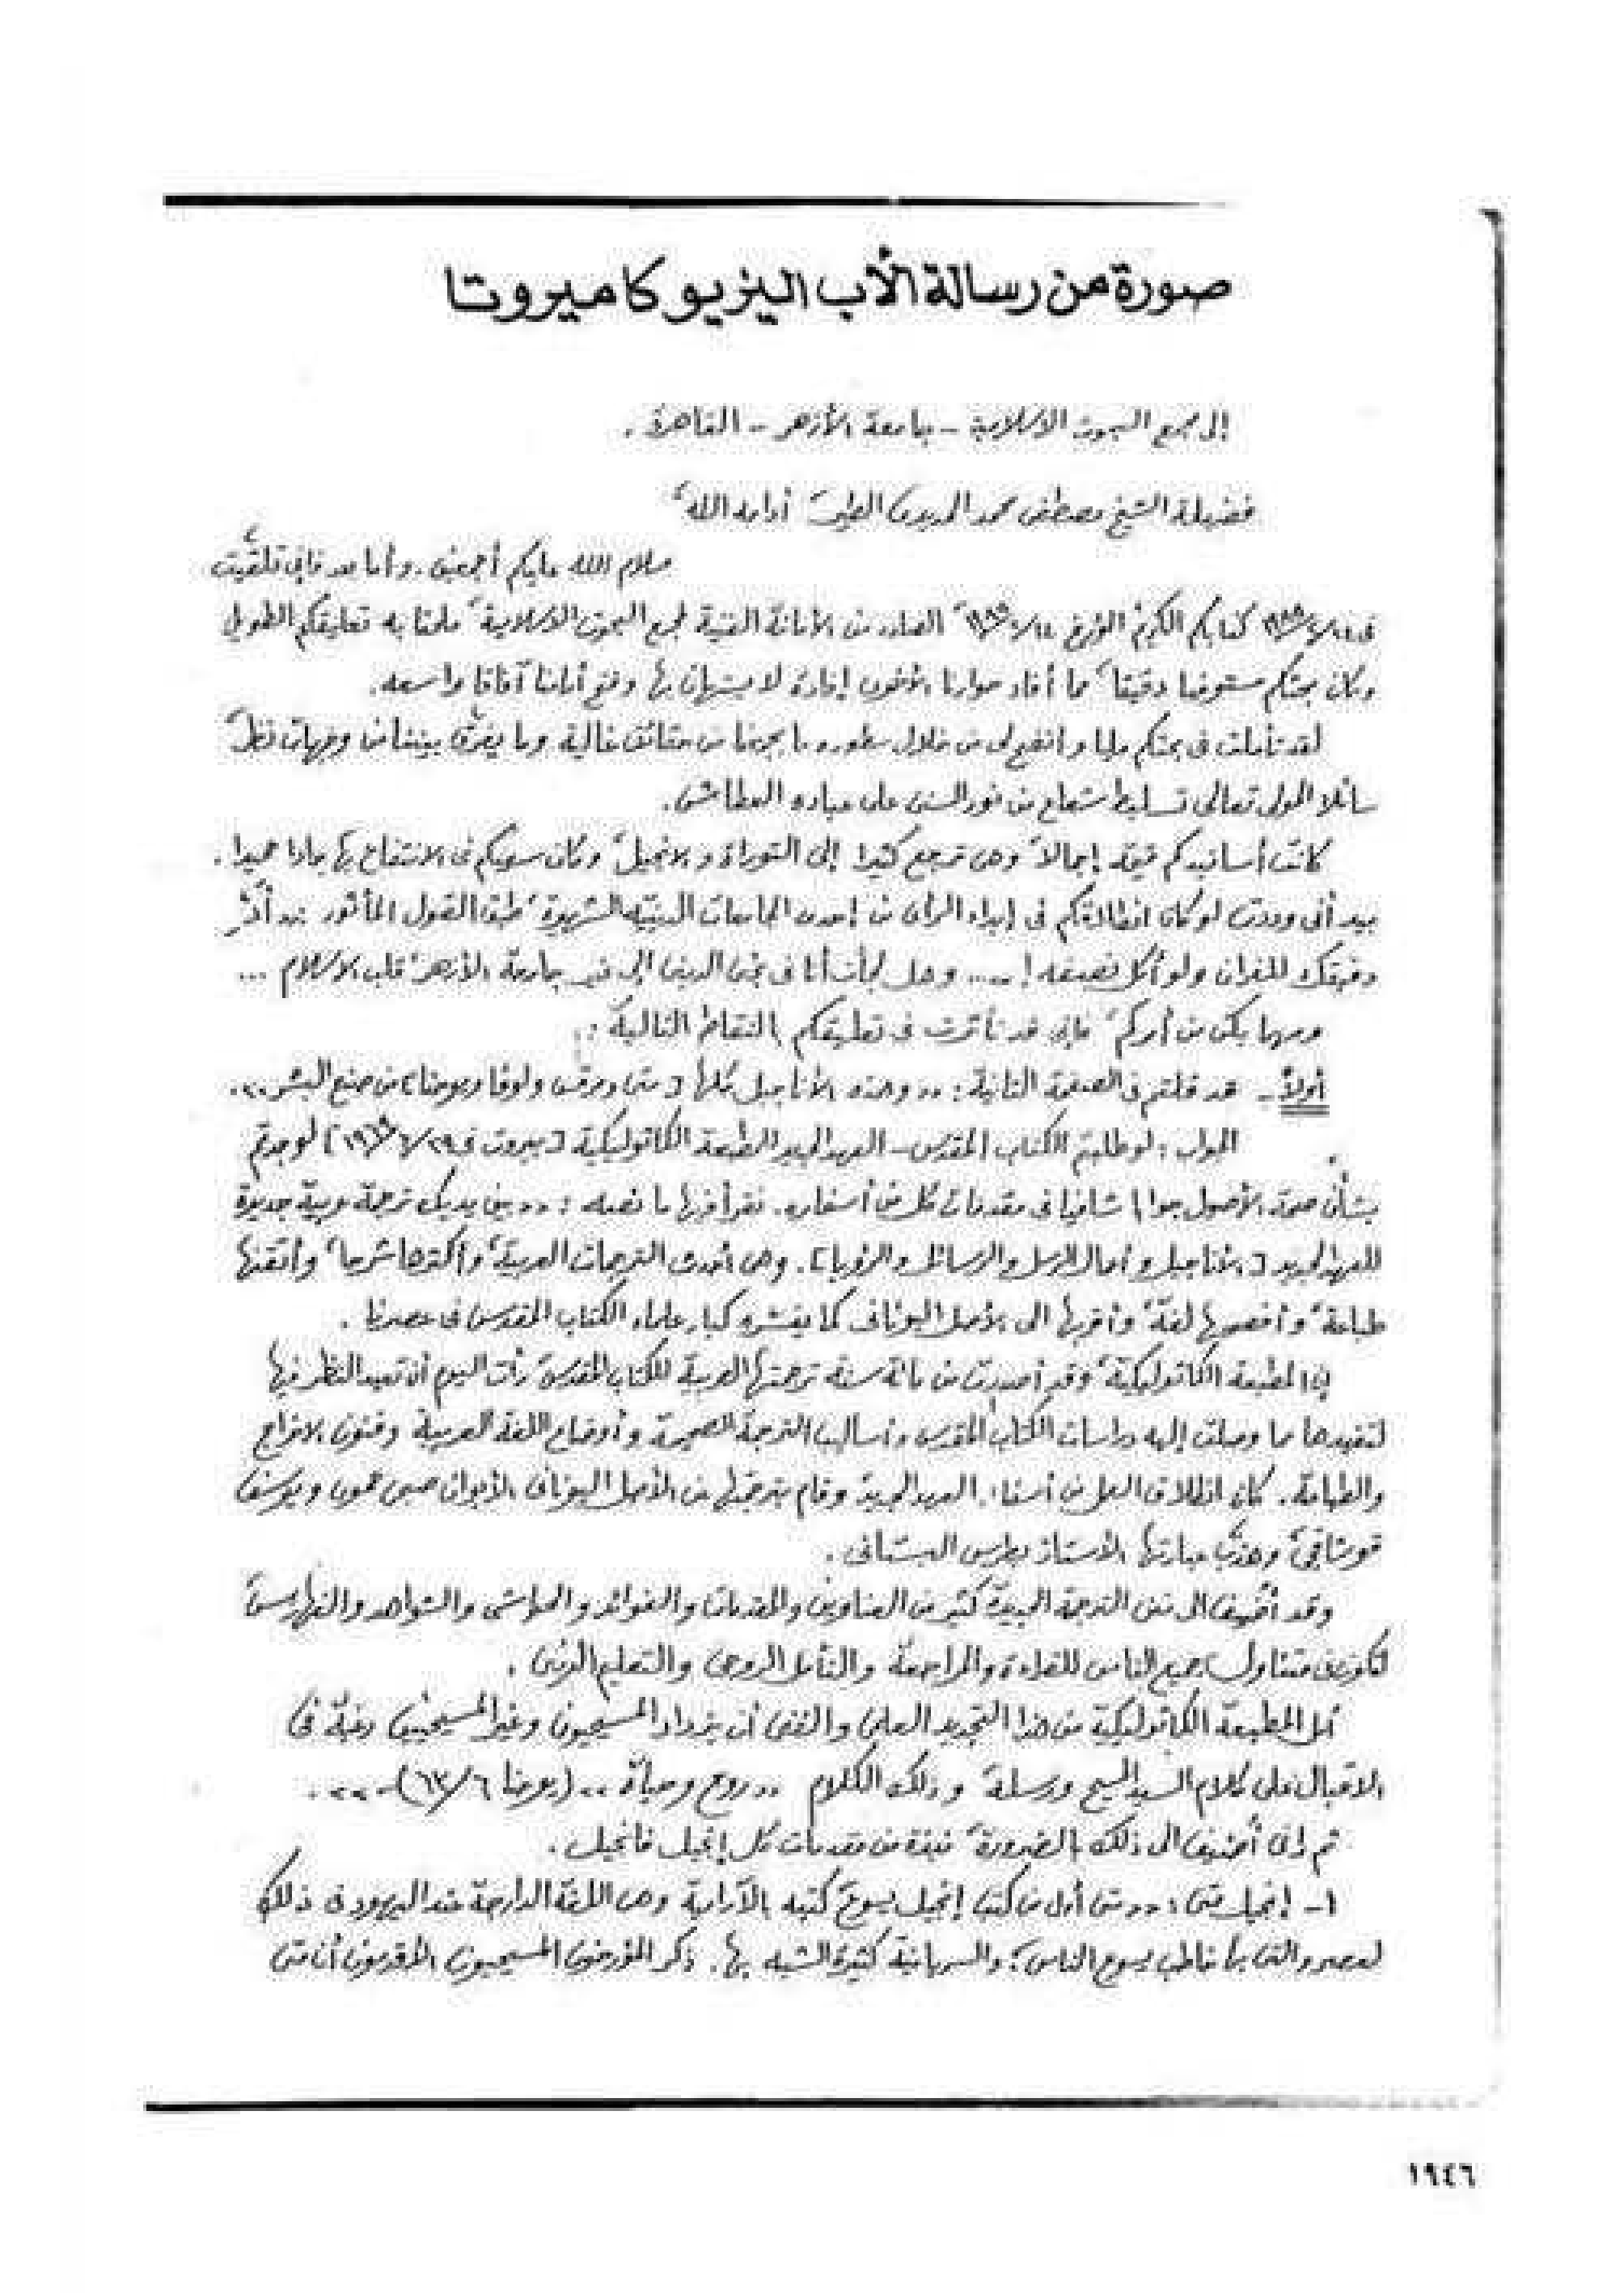 صورة من رسالة الأب اليزيو كاميروتا
إلى مجمع البحوث الاسلامية - جامعة الأزهر - القاهرة .
فضيلة الشيخ مصطفى محمد الحديدى الطير، أدامه الله،
سلام الله عليكم أجمعين . وأما بعد فإنى تلقيت
فى كتابكم الكريم المؤرخ الصادر من الأمانة الفنية لمجمع البحوث الاسلامية، ملحقا به تعليقكم الطويل
وكان بحثكم مستوفيا دقيقا، مما أفاد حوارنا الأخوى إفادة لا يستهان بها وفتح أمامنا آفاقا واسعة .
لقد تأملت فى بحثكم مليا واتضح لى من خلال سطوره ما يجمعنا من حقائق غالية وما يفرق بيننا من وجهات نظر
سائلا المولى تعالى تسليط شعاع من نوره السنى على عباده العطاشى .
كانت أسانيدكم قيمة إجمالا، وهى ترجع كثيرا إلى التوراة والانجيل، وكان سعيكم فى الانتفاع بها جادا حميدا .
بيد أنى وددت لو كان انطلاقكم فى إبداء الرأى من إحدى الجامعات الدينية الشهيرة، طبق القول المأثور :
دقيقك للفران ولو أكل نصيفه ! .... وهل لجأت أنا فى بحثى الدينى إلى غير جامعة الأزهر، قلب الاسلام ...
ومهما يكن من أمركم، فإنى قد تأثرت فى تعليقكم بالنقاط التالية :
أولا - قد قلتم فى الصفحة الثانية : ,, وهذه الأناجيل كلها [ متى ومرقس ولوقا ويوحنا ] من صنع البشر ,, .
الجواب : لو طلبتم الكتاب المقدس - العهد الجديد المطبعة الكاثوليكية [ بيروت فى ] لوجدتم
بشأن صحة الأصول جوابا شافيا فى مقدمات كل من أسفاره . نقرأ فيها ما نصه : ,, بين يديك ترجمة عربية جديدة
للعهد الجديد [ الأناجيل وأعمال الرسل والرسائل والرؤيا ] . وهى أحدى الترجمات العربية، وأكثرها شرحا، وأتقنها
طباعة، وأفصحها لغة، وأقربها الى الأصل اليونانى كما يفسره كبار علماء الكتاب المقدس فى عصرنا .
إن المطبعة الكاثوليكية، وقد أصدرت من مائة سنة ترجمتها العربية للكتاب المقدس، رأت اليوم أن تعيد النظر فيها
لتفيدها مما وصلت إليه دراسات الكتاب المقدس وأساليب الترجمة الصحيحة وأوضاع اللغة العربية وفنون الاخراج
والطباعة . كان انطلاق العمل من أسفار العهد الجديد، وقام بترجمتها من الأصل اليونانى الأبوان صبحى حموى ويوسف
قوشاقجى، وهذب عبارتها الأستاذ بطرس البستانى .
وقد أضيف الى متن الترجمة الجديدة كثير من العناوين والمقدمات والفوائد والحواشى والشواهد والفهارس،
لتكون فى متناول جميع الناس للقراءة والمراجعة والتأمل الروحى والتعليم الدينى .
أمل المطبعة الكاثوليكية من هذا التجديد العلمى والفنى أن يزداد المسيحيون وغير المسيحيين رغبة فى
الاقبال على كلام السيد المسيح ورسله، وذلك الكلام ,, روح وحياة ,, (يوحنا ٦/٦٣) - ,, .
ثم إنى أضيف الى ذلك بالضرورة، نبذة من مقدمات كل إنجيل فانجيل .
١- إنجيل متى : ,, متى أول من كتب إنجيل يسوع، كتبه بالآرامية وهى اللغة الدارجة عند اليهود فى ذلك
العصر والتى بها خاطب يسوع الناس، والسريانية كثيرة الشبه بها . ذكر المؤرخون المسيحيون الأقدمون أن متى
١٩٤٦